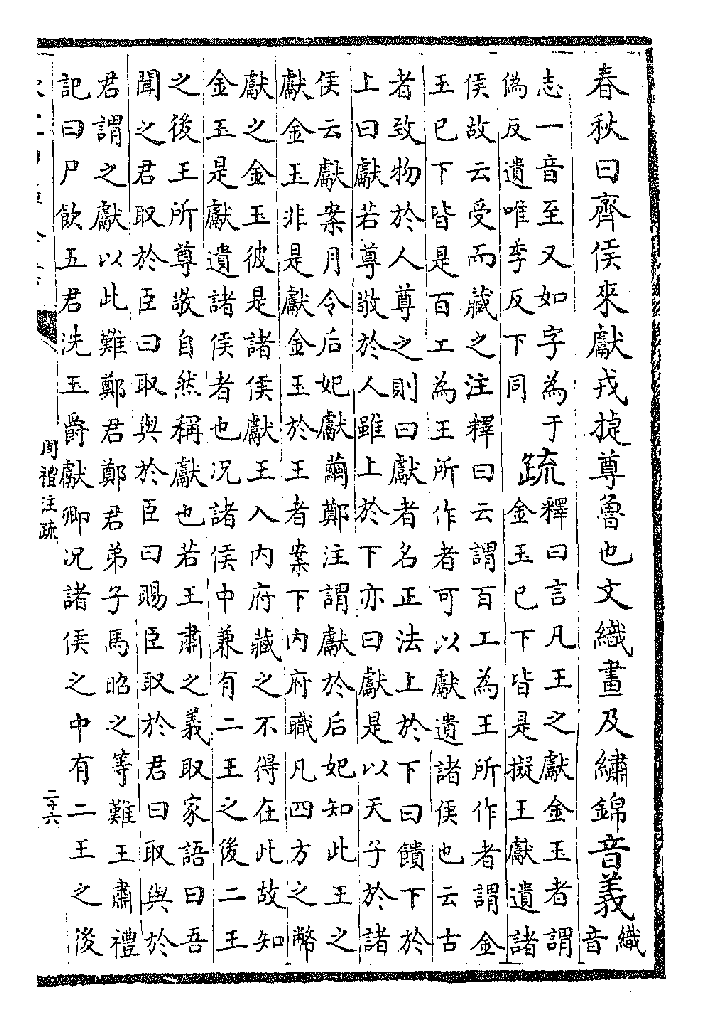 春秋曰齊侯來獻戎捷尊魯也文織畫及繡錦音義織音
志一音至又如字為于
偽反遺唯季反下同
疏
釋曰言凡王之獻金玉者謂
金玉已下皆是擬王獻遺諸
侯故云受而藏之注釋曰云謂百工為王所作者謂金
玉已下皆是百工為王所作者可以獻遺諸侯也云古
者致物於人尊之則曰獻者名正法上於下曰饋下於
上曰獻若尊敬於人雖上於下亦曰獻是以天子於諸
侯云獻案月令后妃獻繭鄭注謂獻於后妃知此王之
獻金玉非是獻金玉於王者案下內府職凡四方之幣
獻之金玉彼是諸侯獻王入內府藏之不得在此故知
金玉是獻遺諸侯者也況諸侯中兼有二王之後二王
之後王所尊敬自然稱獻也若王肅之義取家語曰吾
聞之君取於臣曰取與於臣曰賜臣取於君曰取與於
君謂之獻以此難鄭君鄭君弟子馬昭之等難王肅禮
記曰尸飲五君洗玉爵獻卿況諸侯之中有二王之後
周禮注疏
二十六